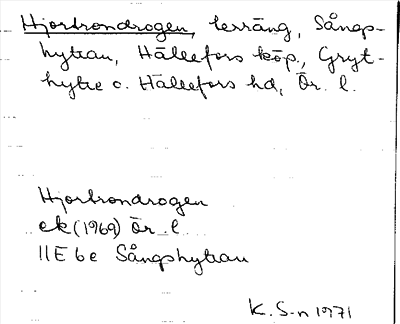 Hjortrondrogen, terräng, Sångs-
hyttan, Hällefors köp., Gryt-
hytte o. Hällefors hd, Ör. l.
Hjortrondrogen
ek (1969) Ör. l
11E 6e Sångshyttan
K. S-n 1971